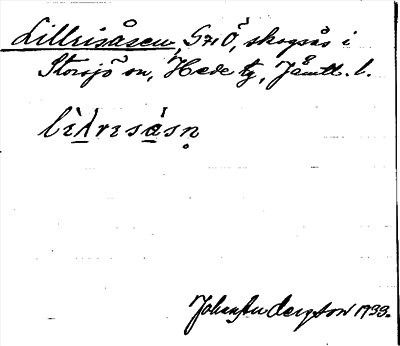 Lillrisåsen, S71Ö, skogsås i
Storsjö sn, Hede tg, Jämtl. l.
lìlrisåsn̥
Johan Andersson 1933.